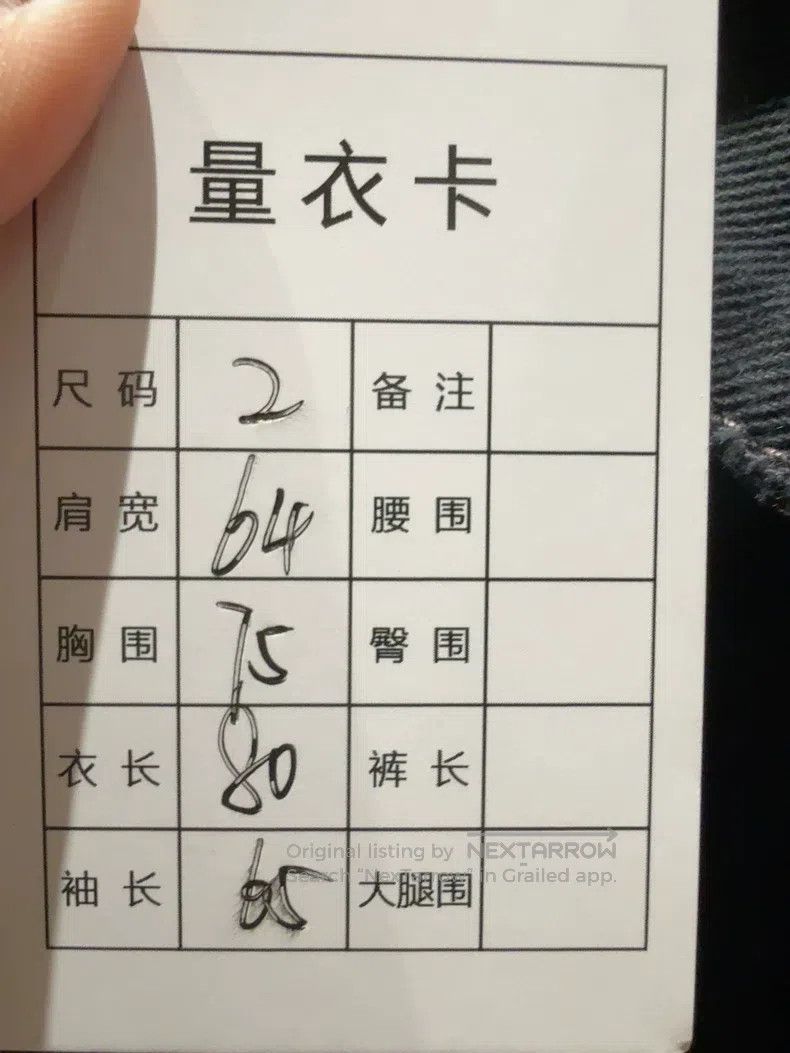 量衣卡
尺码 2 备注
肩宽 64 腰围
胸围 75 臀围
衣长 80 裤长
Original listing by NEXTARROW
Search "NexTarrow" in Grailed app.
袖长 65 大腿围